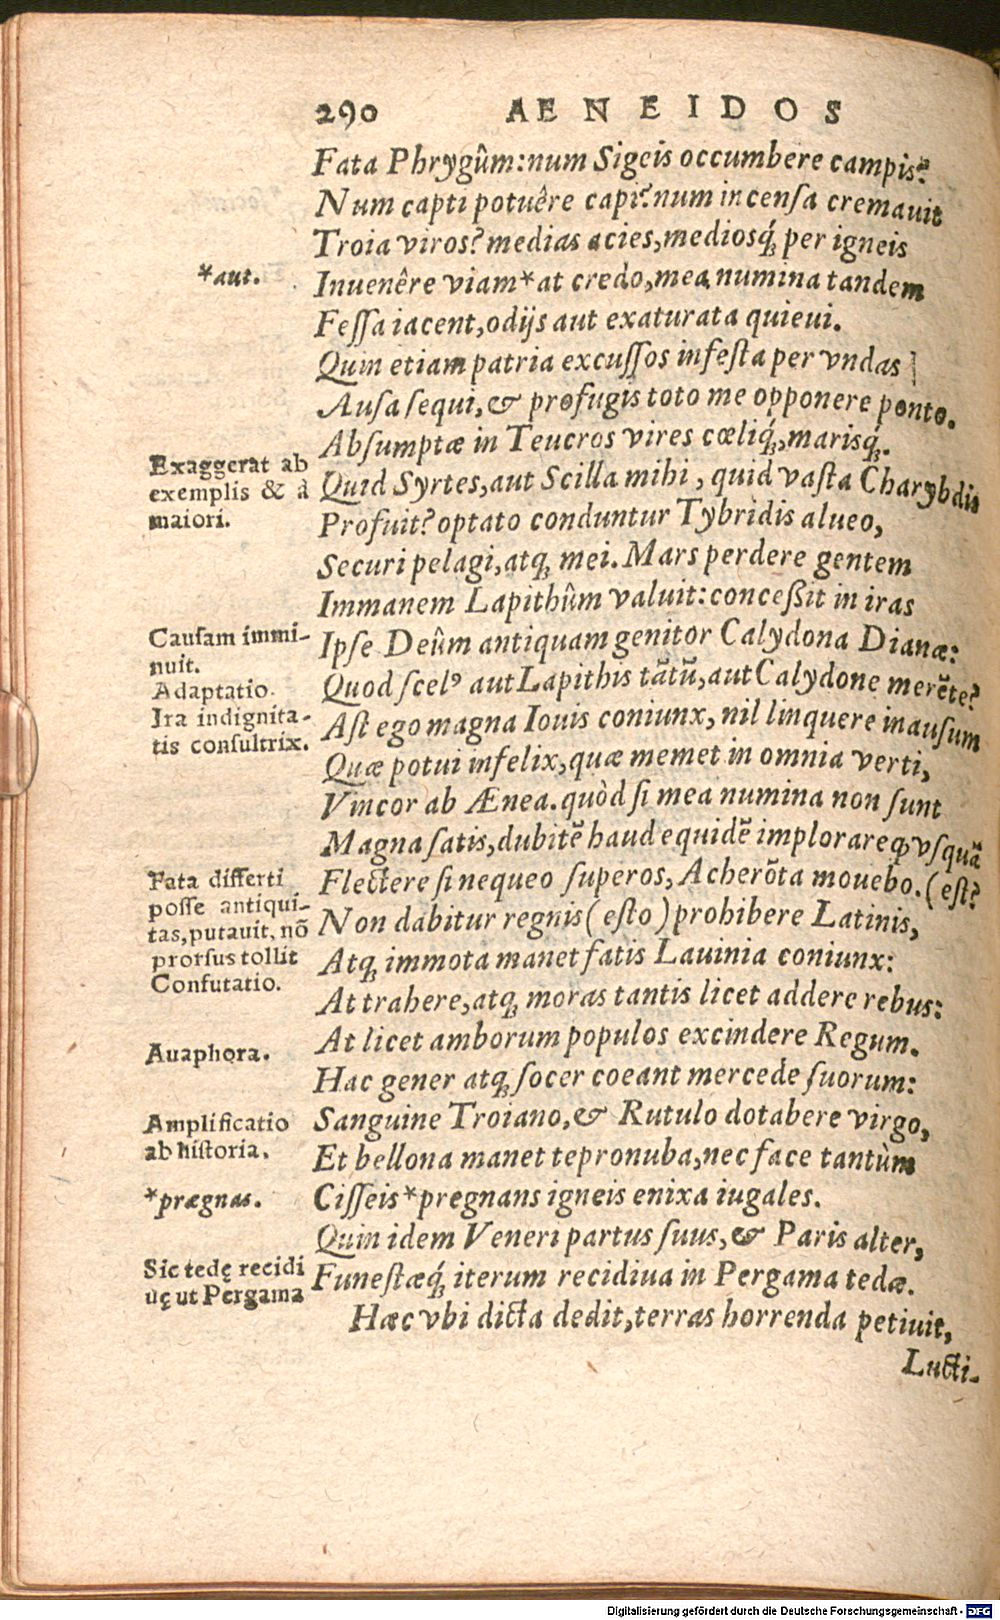 290 AENEIDOS
Fata Phrygûm: num Sigeis occumbere campis?
Num capti potuêre capi? num incensa cremauit
Troia viros? medias acies, mediosq́; per igneis
*aut.
Inuenêre viam* at credo, mea numina tandem
Fessa iacent, odijs aut exaturata quieui.
Quin etiam patria excussos infesta per vndas
Ausa sequi, & profugis toto me opponere ponto.
Absumptæ in Teucros vires cœliq́;, marisq́;.
Exaggerat ab
exemplis & à
maiori.
Quid Syrtes, aut Scilla mihi, quid vasta Charybdis
Profuit? optato conduntur Tybridis alueo,
Securi pelagi, atq; mei. Mars perdere gentem
Immanem Lapithûm valuit: conceßit in iras
Causam immi-
nuit.
Ipse Deûm antiquam genitor Calydona Dianæ:
Adaptatio.
Quod scelꝰ aut Lapithis tãtũ, aut Calydone merẽte?
Ira indignita-
tis consultrix.
Ast ego magna Iouis coniunx, nil linquere inausum
Quæ potui infelix, quæ memet in omnia verti,
Vincor ab Ænea. quòd si mea numina non sunt
Magna satis, dubitẽ haud equidẽ implorare qͅ vsquã
Fata differri
posse antiqui-
tas, putauit, nõ
prorsus tollit
Confutatio.
Flectere si nequeo superos, Acherõta mouebo. (est?
Non dabitur regnis (esto) prohibere Latinis,
Atq; immota manet fatis Lauinia coniunx:
At trahere, atq; moras tantis licet addere rebus:
Auaphora.
At licet amborum populos excindere Regum.
Hac gener atq; socer coeant mercede suorum:
Amplificatio
ab historia.
Sanguine Troiano, & Rutulo dotabere virgo,
Et bellona manet te pronuba, nec face tantùm
*prægnas.
Cisseis* pregnans igneis enixa iugales.
Quin idem Veneri partus suus, & Paris alter,
Sic tedę recidi
uę ut Pergama
Funestæq́; iterum recidiua in Pergama tedæ.
Hæc vbi dicta dedit, terras horrenda petiuit,
Lucti-
Digitalisierung gefördert durch die Deutsche Forschungsgemeinschaft - DFG